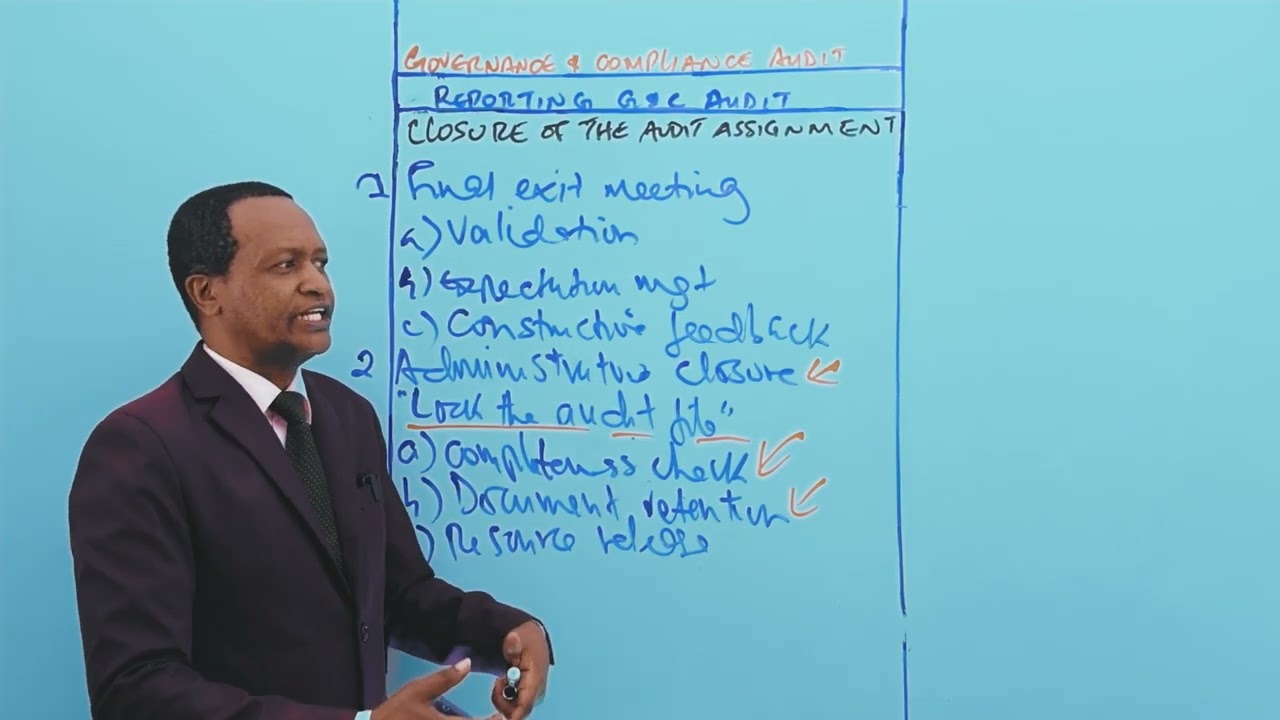 GOVERNANCE & COMPLIANCE AUDIT
REPORTING G&C AUDIT
CLOSURE OF THE AUDIT ASSIGNMENT
1 Final exit meeting
a) Validation
b) Expectation mgt
c) Constructive feedback
2 Administrative closure
"Lock the audit file"
a) Completeness check
b) Document retention
) Resource release